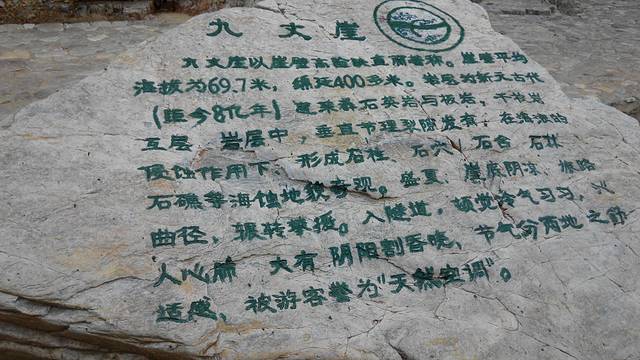 九丈崖
九丈崖以崖壁高险陡直而著称。崖壁平均
海拔为69.7米，绵延400多米。岩层为新元古代
(距今8亿年) 蓬莱群石英岩与板岩，千枚岩
互层，岩层中，垂直节理裂隙发育，在海浪的
侵蚀作用下，形成石柱、石穴、石台、石林
石礁等海蚀地貌奇观。盛夏，崖底阴凉，依路
曲径，辗转攀援。入隧道，顿觉冷气习习，沁
人心肺，大有"阴阳割昏晓，节气分两地"之舒
适感，被游客誉为"天然空调"。